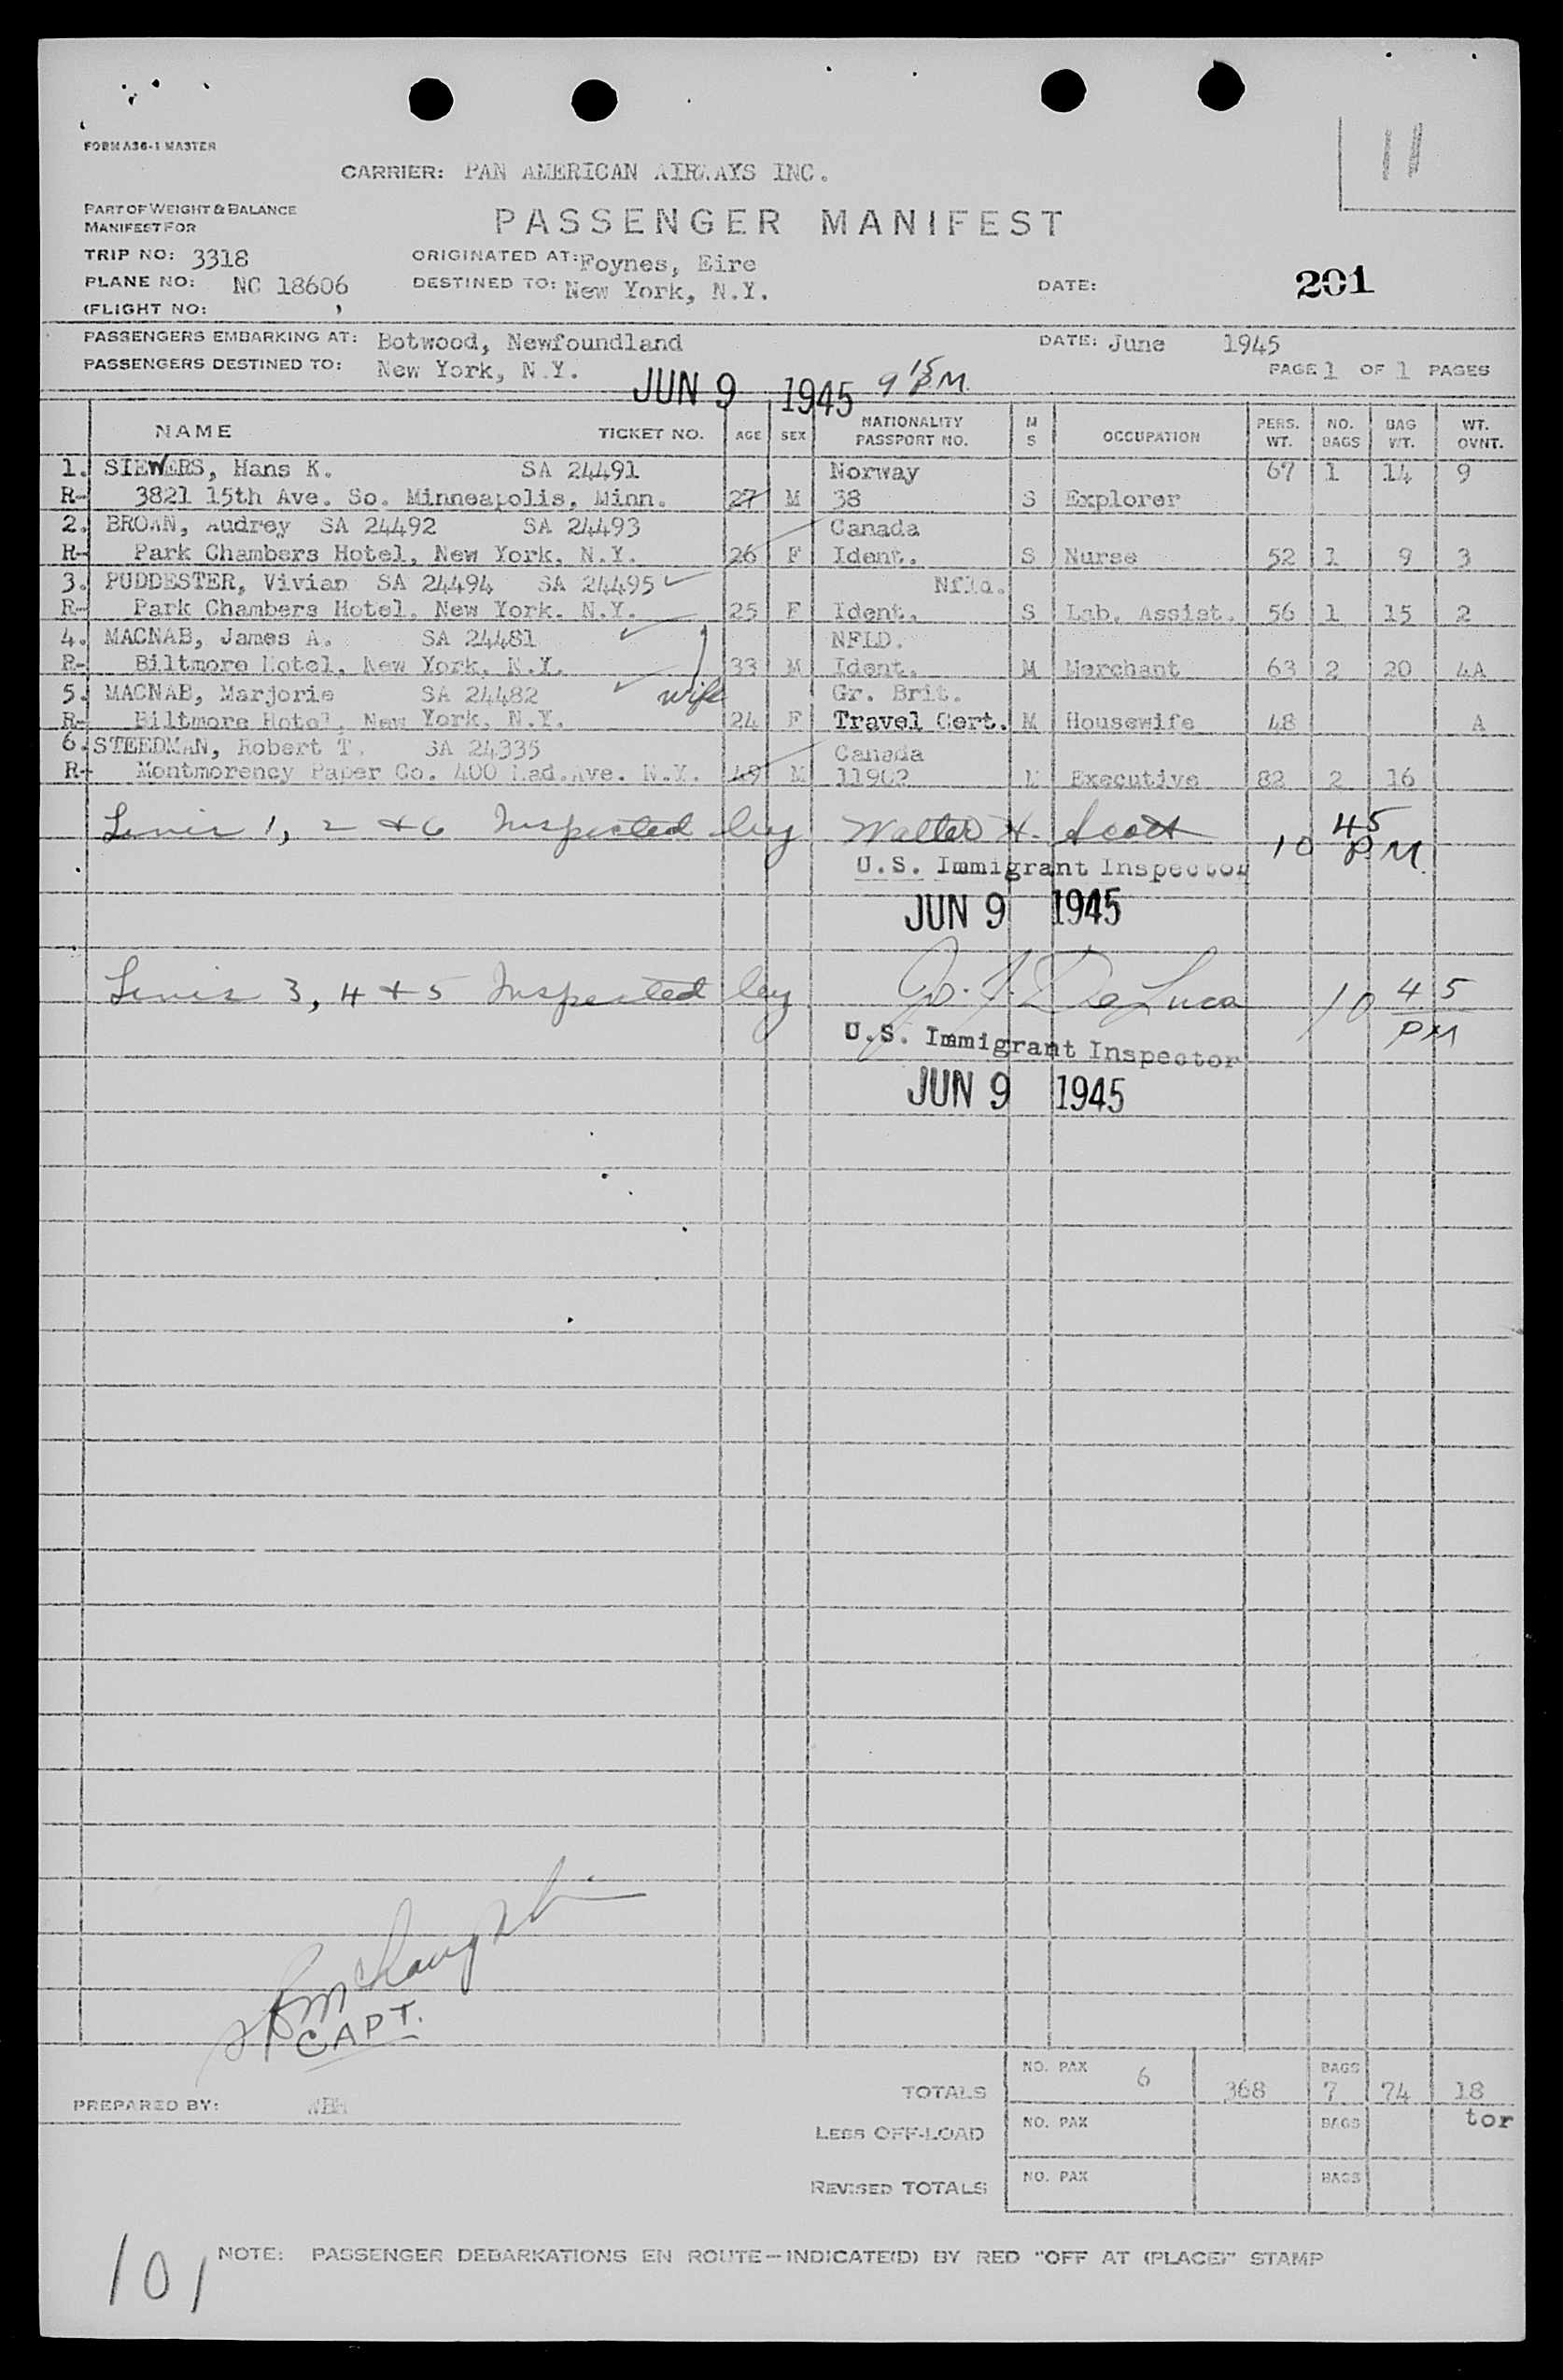 FORM A36-1 MASTER
11
CARRIER: PAN AMERICAN AIRWAYS INC.
PART OF WEIGHT & BALANCE
MANIFEST FOR
PASSENGER MANIFEST
TRIP NO: 3318 ORIGINATED AT: Foynes, Eire
PLANE NO: NC 18606 DESTINED TO: New York, N.Y. DATE: 201
(FLIGHT NO: )
PASSENGERS EMBARKING AT: Botwood, Newfoundland DATE: June 1945
PASSENGERS DESTINED TO: New York, N.Y. PAGE 1 OF 1 PAGES
JUN 9 1945 9 15 PM
NAME TICKET NO. AGE SEX NATIONALITY PASSPORT NO. M S OCCUPATION PERS. WT. NO. BAGS BAG WT. WT. OVNT.
1. SIEWERS, Hans K. SA 24491 Norway 67 1 14 9
R- 3821 15th Ave. So. Minneapolis, Minn. 27 M 38 S Explorer
2. BROWN, Audrey SA 24492 SA 24493 Canada
R- Park Chambers Hotel, New York, N.Y. 26 F Ident. S Nurse 52 1 9 3
3. PUDDESTER, Vivian SA 24494 SA 24495 Nfld.
R- Park Chambers Hotel, New York. N.Y. 25 F Ident. S Lab. Assist. 56 1 15 2
4. MACNAB, James A. SA 24481 NFLD.
R- Biltmore Hotel, New York, N.Y. 33 M Ident. M Merchant 63 2 20 4A
5. MACNAB, Marjorie SA 24482 wife Gr. Brit.
R- Biltmore Hotel, New York, N.Y. 24 F Travel Cert. M Housewife 48 A
6. STEEDMAN, Robert T. SA 24335 Canada
R- Montmorency Paper Co. 400 Mad.Ave. N.Y. 49 M 11902 M Executive 82 2 16
Lines 1, 2 + 6 Inspected by Walter H. Scott 10 45 PM
U.S. Immigrant Inspector
JUN 9 1945
Lines 3, 4 + 5 Inspected by DeLuca 10 45 PM
U.S. Immigrant Inspector
JUN 9 1945
CAPT.
TOTALS NO. PAX 6 368 BAGS 7 74 18
PREPARED BY:
LESS OFF-LOAD NO. PAX BAGS tor
REVISED TOTALS NO. PAX BAGS
101
NOTE: PASSENGER DEBARKATIONS EN ROUTE—INDICATE(D) BY RED "OFF AT (PLACE)" STAMP